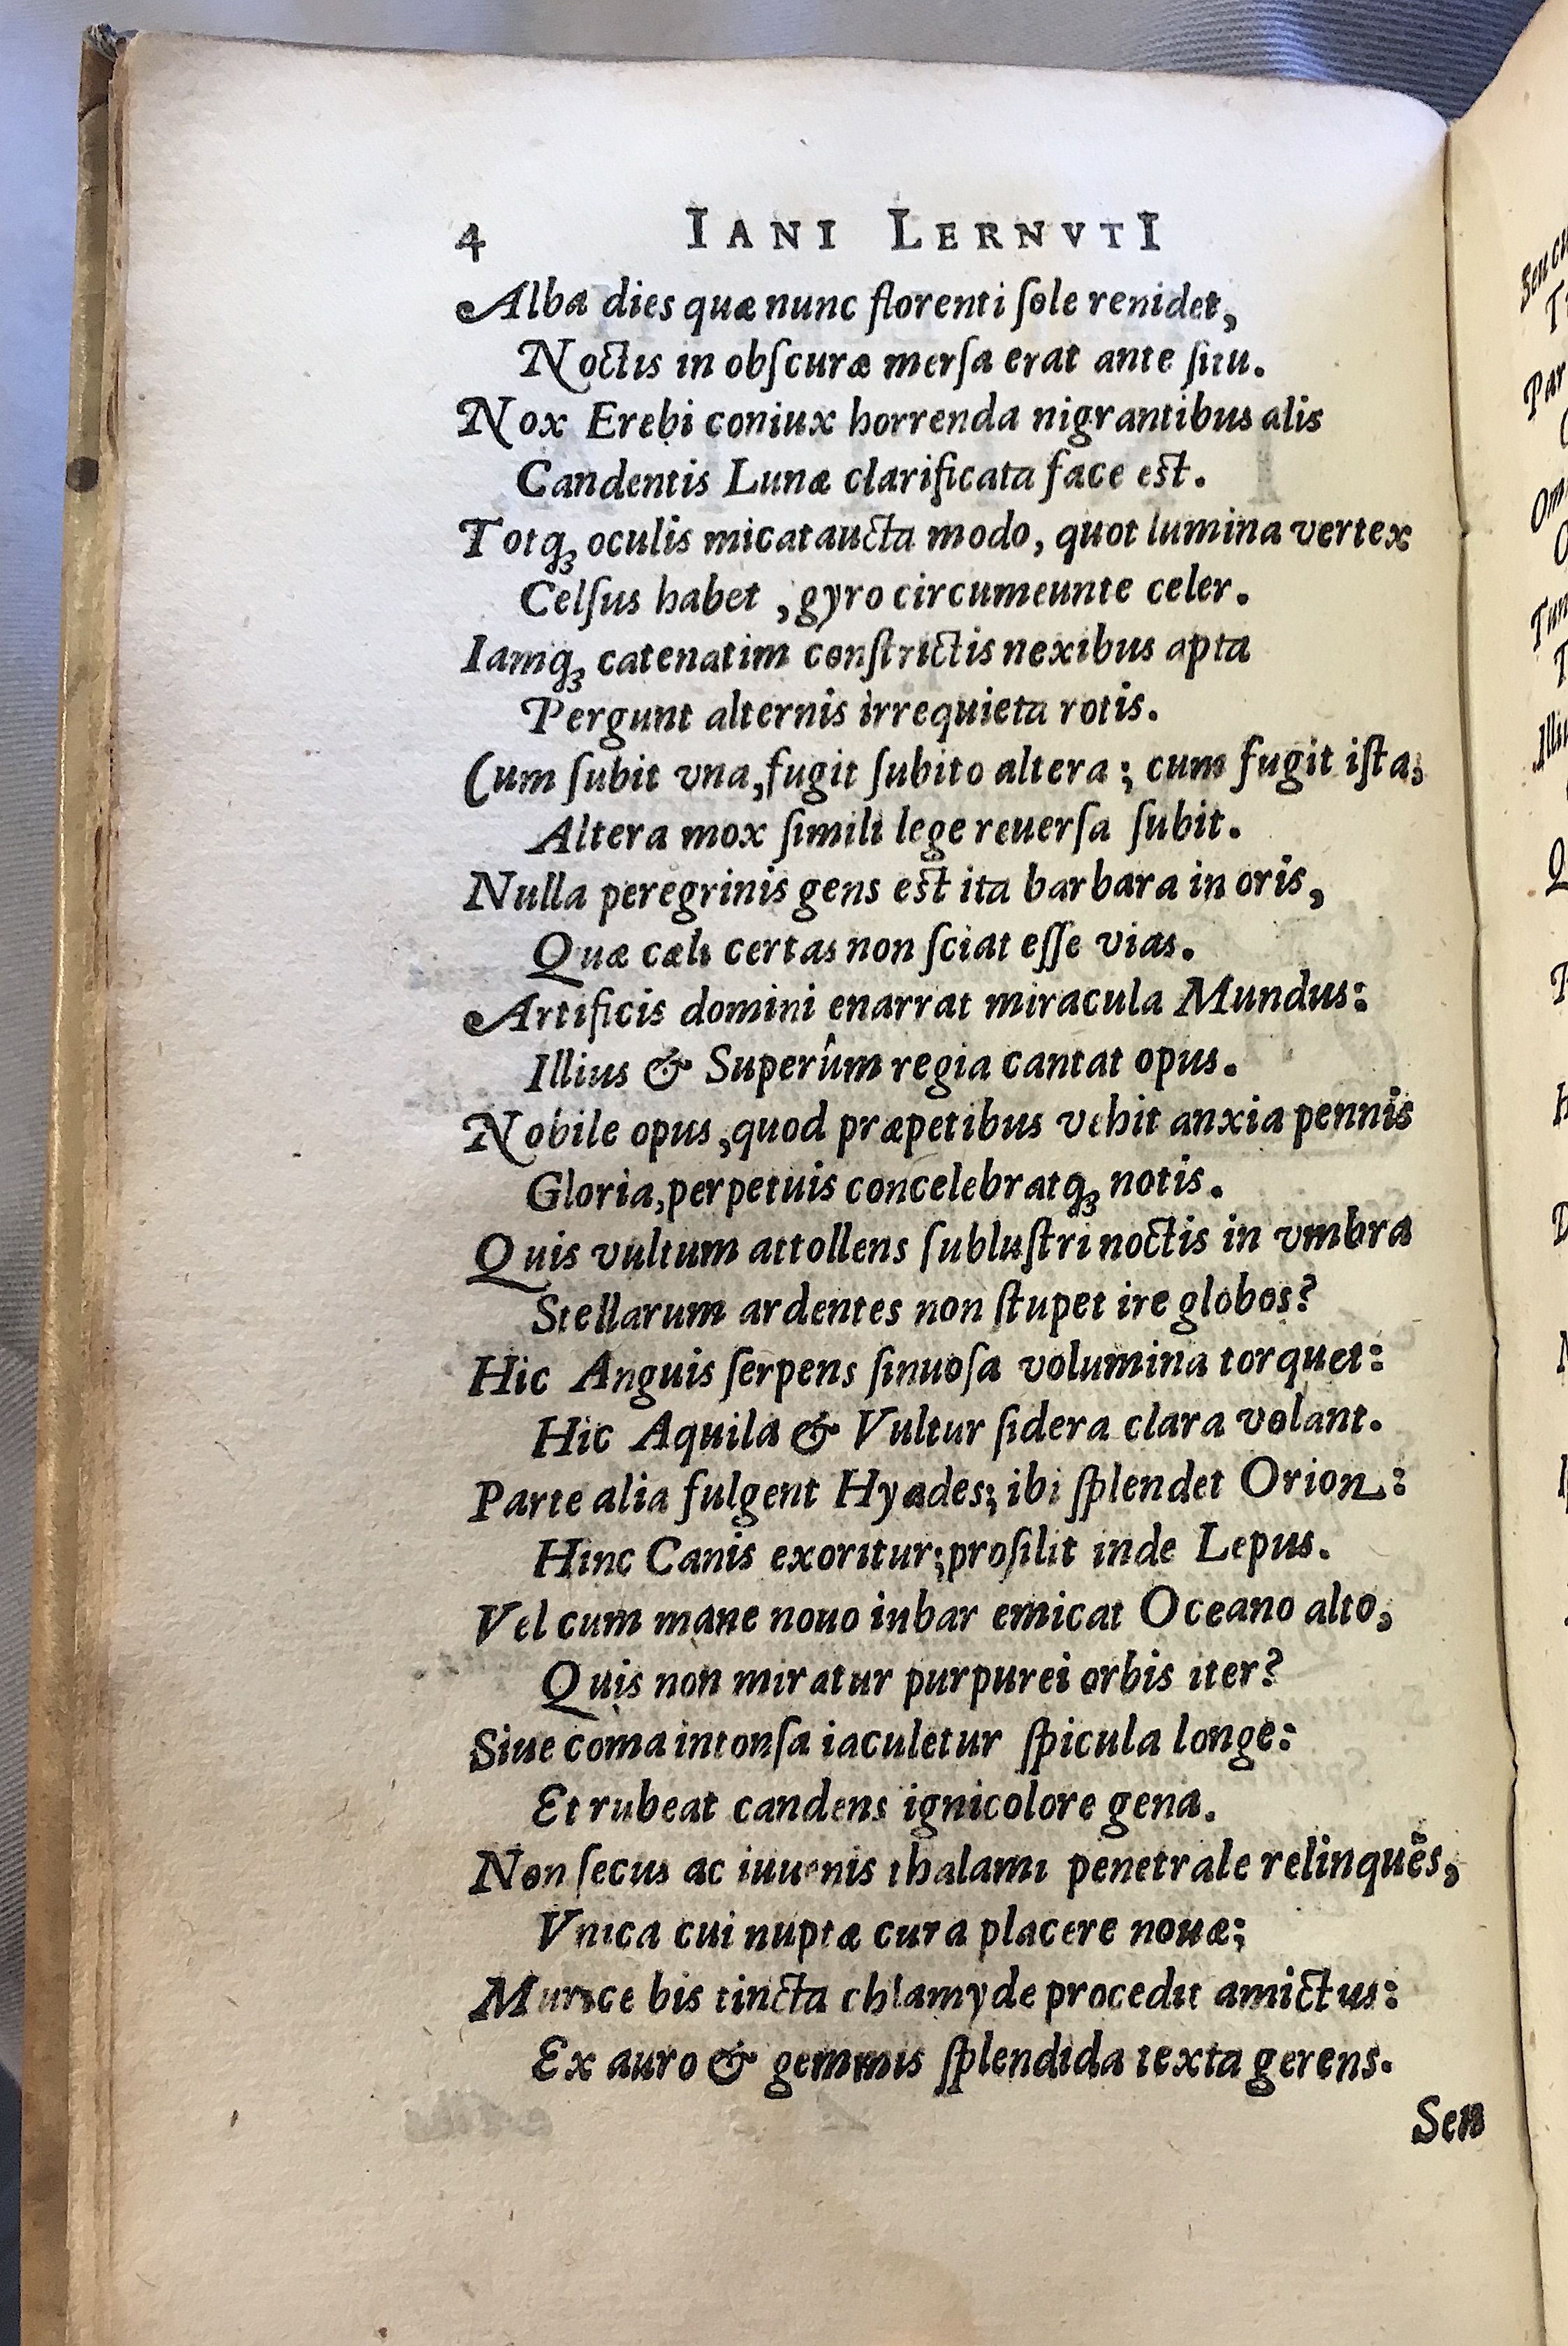 4 IANI LERNVTI
Alba dies quæ nunc florenti ſole renidet,
Noctis in obſcuræ merſa erat ante ſitu.
Nox Erebi coniux horrenda nigrantibus alis
Candentis Lunæ clarificata face est.
Totqꝫ oculis micat aucta modo, quot lumina vertex
Celſus habet, gyro circumeunte celer.
Iamqꝫ catenatim conſtrictis nexibus apta
Pergunt alternis irrequieta rotis.
Cum ſubit vna, fugit ſubito altera; cum fugit iſta,
Altera mox ſimili lege reuerſa ſubit.
Nulla peregrinis gens est ita barbara in oris,
Quæ cæli certas non ſciat eſſe vias.
Artificis domini enarrat miracula Mundus:
Illius & Superûm regia cantat opus.
Nobile opus, quod præpetibus vehit anxia pennis
Gloria, perpetuis concelebratqꝫ notis.
Quis vultum attollens ſubluſtri noctis in vmbra
Stellarum ardentes non ſtupet ire globos?
Hic Anguis ſerpens ſinuoſa volumina torquet:
Hic Aquila & Vultur ſidera clara volant.
Parte alia fulgent Hyades; ibi ſplendet Orion:
Hinc Canis exoritur; proſilit inde Lepus.
Vel cum mane nouo iubar emicat Oceano alto,
Quis non miratur purpurei orbis iter?
Siue coma intonſa iaculetur ſpicula longe:
Et rubeat candens ignicolore gena.
Non ſecus ac iuuenis thalami penetrale relinquẽs,
Vnica cui nuptæ cura placere nouæ;
Murice bis tincta chlamyde procedit amictus:
Ex auro & gemmis ſplendida texta gerens.
Sen